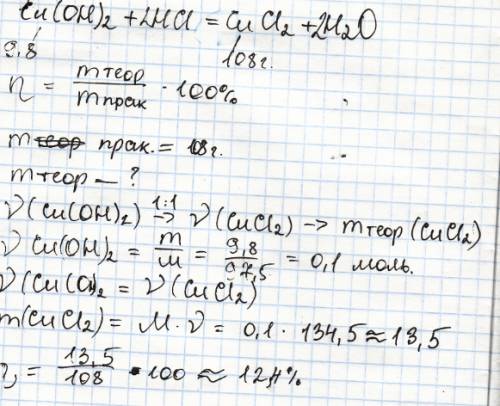 Cu(OH)₂ + 2HCl = CuCl₂ + 2H₂O
9,8 108г.
η = mтеор/mпрак · 100%
m теор прак. = 108г.
mтеор — ?
ν(Cu(OH)₂) 1:1 → ν(CuCl₂) → mтеор(CuCl₂)
ν Cu(OH)₂ = m/M = 9,8/97,5 = 0,1 моль.
ν(Cu(OH)₂ = ν(CuCl₂)
m(CuCl₂) = M · ν = 0,1 · 134,5 ≈ 13,5
η = 13,5/108 · 100 ≈ 12,4%